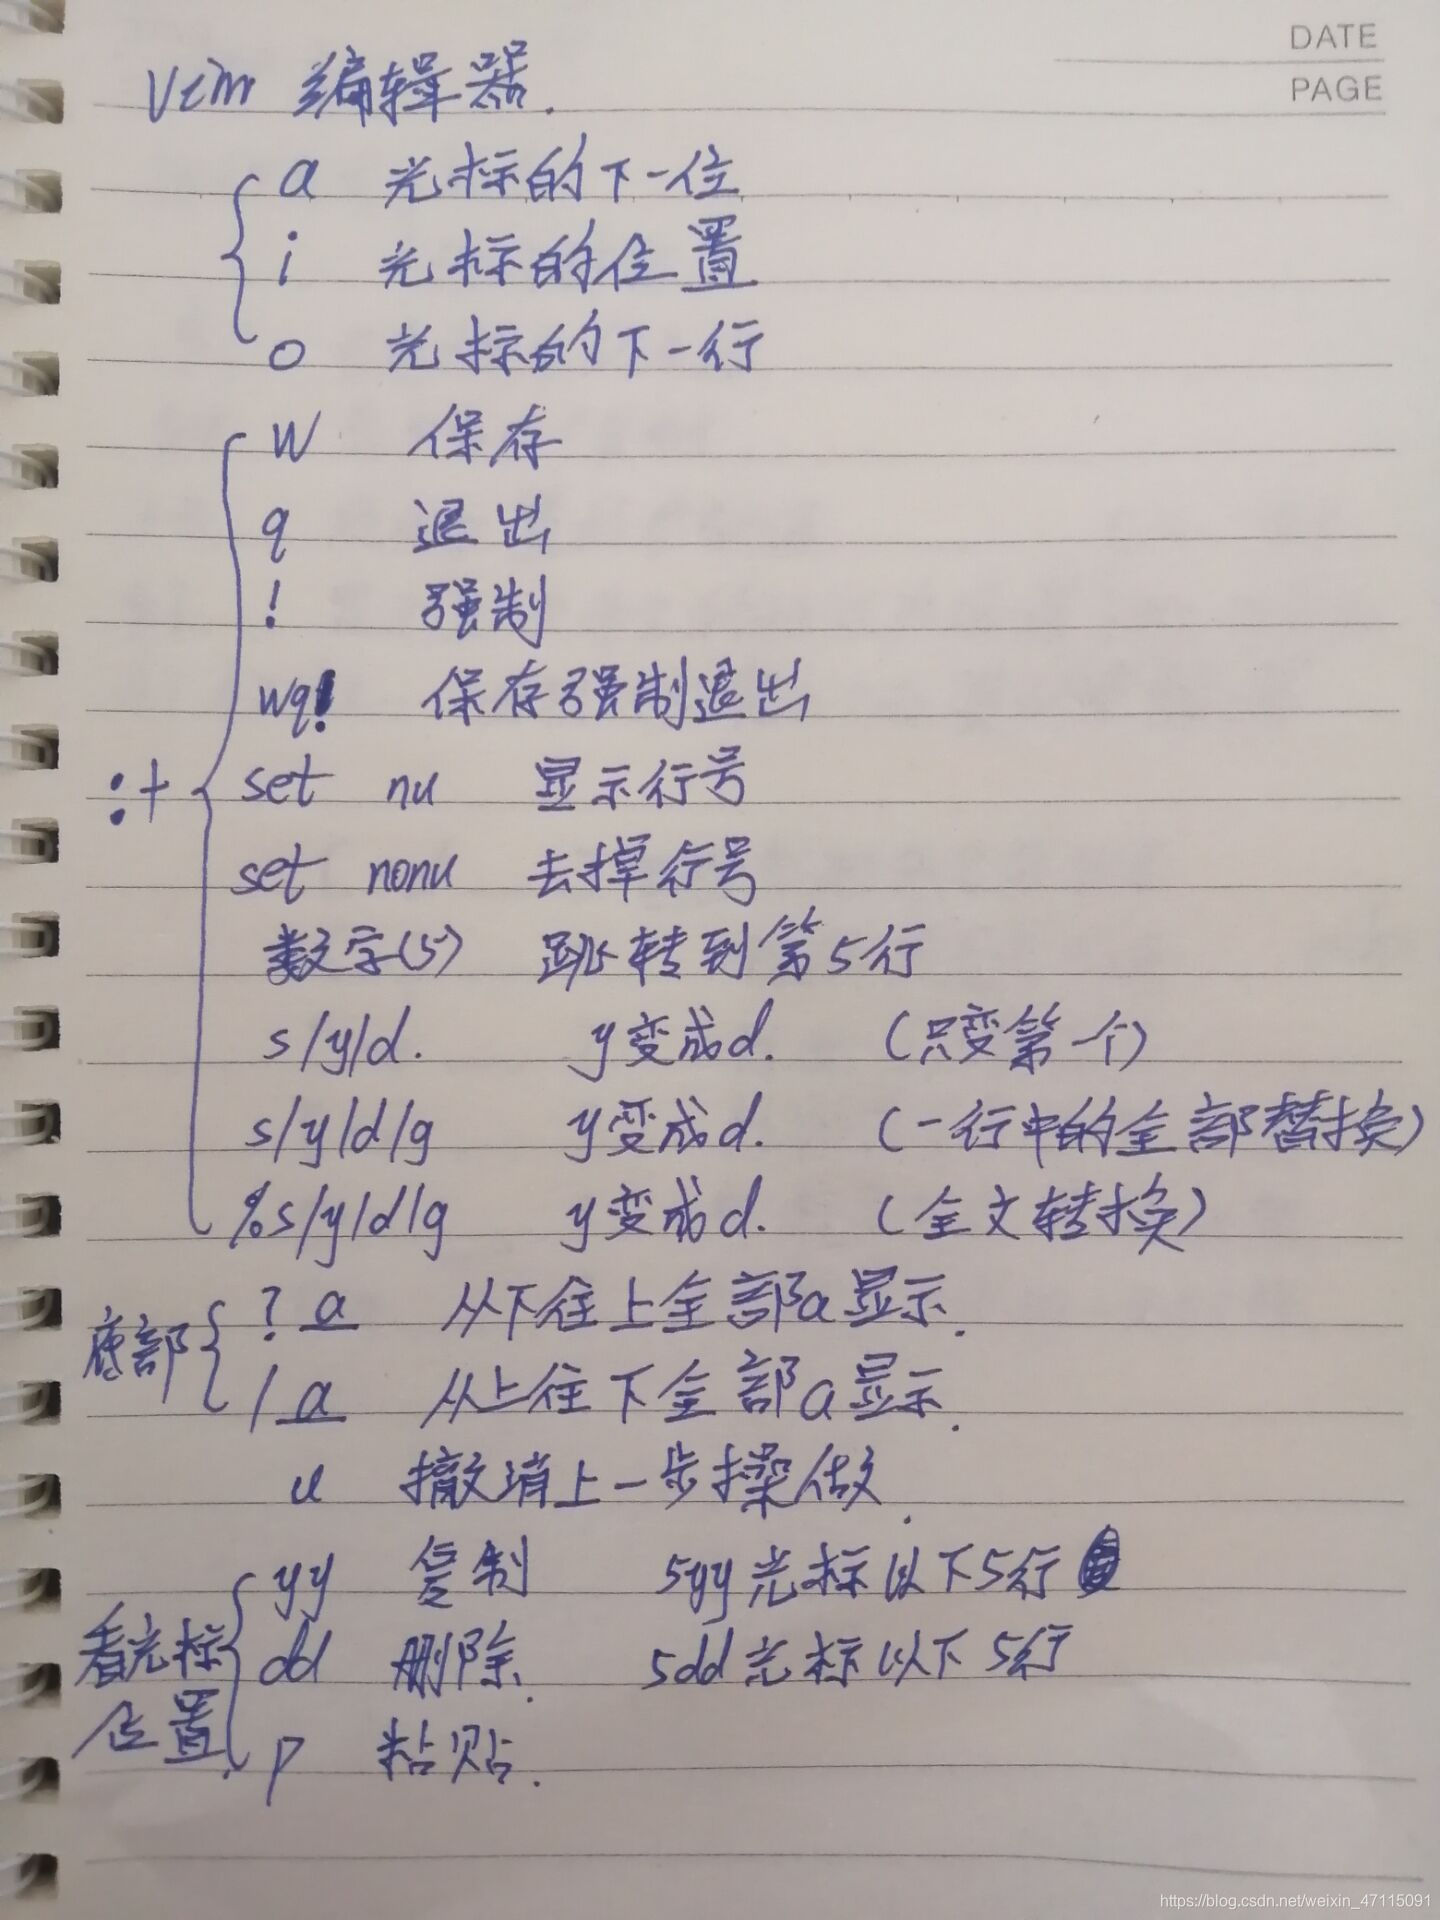 DATE
PAGE
Vim 编辑器.
a 光标的下一位
i 光标的位置
o 光标的下一行
:+
w 保存
q 退出
! 强制
wq! 保存强制退出
set nu 显示行号
set nonu 去掉行号
数字(5) 跳转到第5行
s/y/d. y变成d. (只变第一个)
s/y/d/g y变成d. (一行中的全部替换)
%s/y/d/g y变成d. (全文转换)
底部
? a 从下往上全部a显示.
/ a 从上往下全部a显示.
u 撤消上一步操做.
看光标位置.
yy 复制 5yy光标以下5行
dd 删除. 5dd光标以下5行
p 粘贴.
https://blog.csdn.net/weixin_47115091